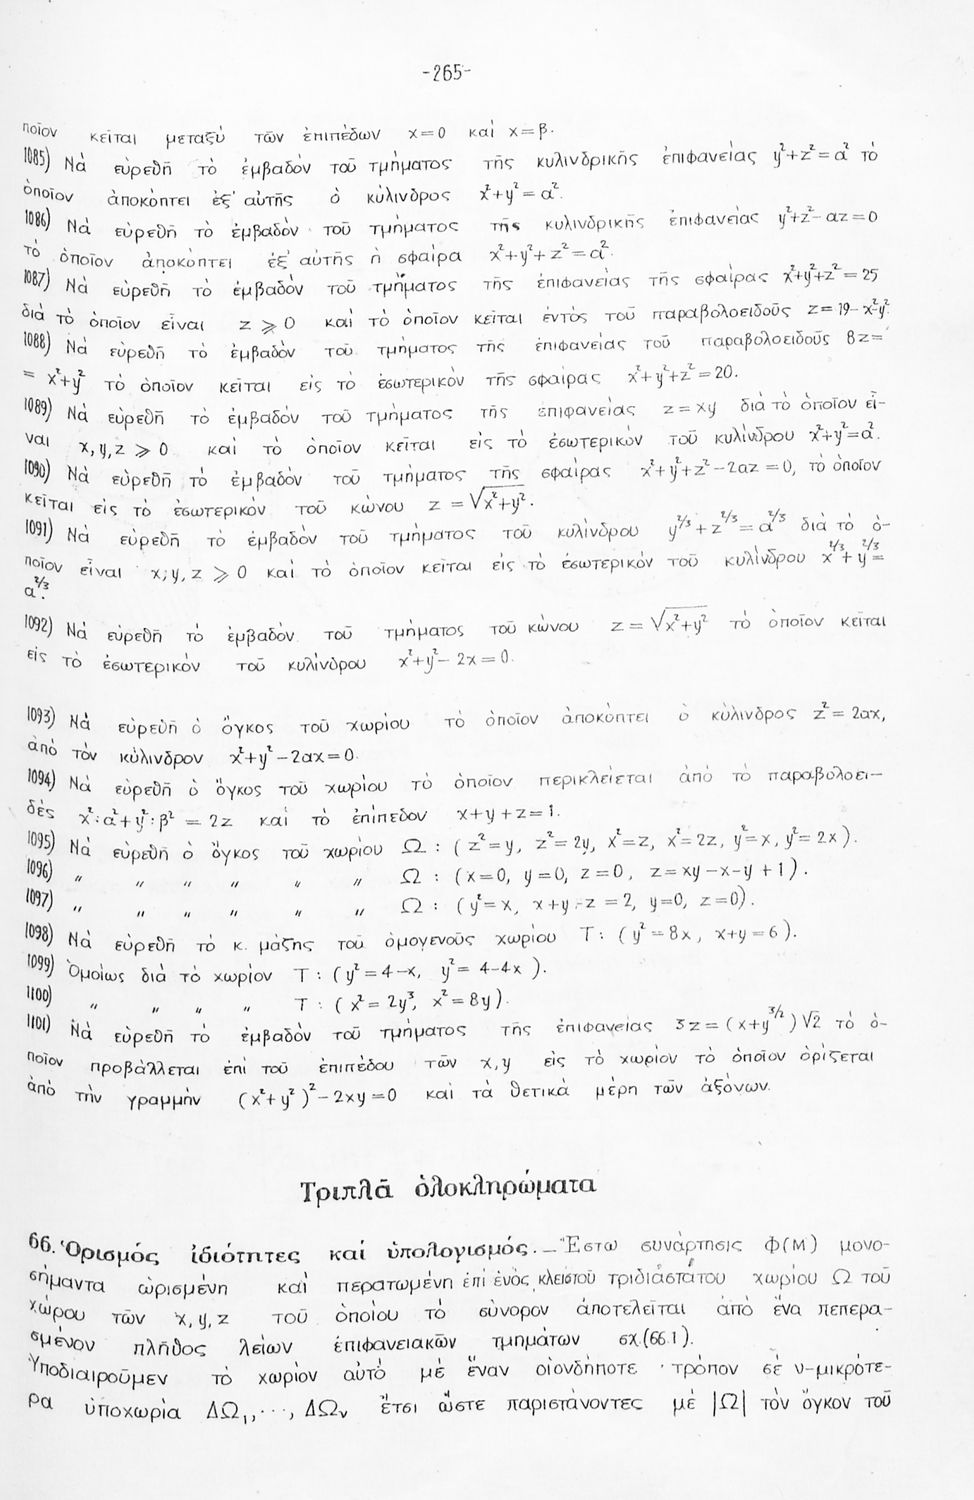 -265-
ποῖον κεῖται μεταξύ τῶν ἐπιπέδων x=0 καί x=β.
1085) Νά εὑρεθῇ τό ἐμβαδόν τοῦ τμήματος τῆς κυλινδρικῆς ἐπιφανείας y²+z²=a² τό
ὁποῖον ἀποκόπτει ἐξ' αὐτῆς ὁ κύλινδρος x²+y²=a².
1086) Νά εὑρεθῇ τό ἐμβαδόν τοῦ τμήματος τῆς κυλινδρικῆς ἐπιφανείας y²+z²-az=0
τό ὁποῖον ἀποκόπτει ἐξ' αὐτῆς ἡ σφαίρα x²+y²+z²=a².
1087) Νά εὑρεθῇ τό ἐμβαδόν τοῦ τμήματος τῆς ἐπιφανείας τῆς σφαίρας x²+y²+z²=25
διά τό ὁποῖον εἶναι z⩾0 καί τό ὁποῖον κεῖται ἐντός τοῦ παραβολοειδοῦς z=19-x²-y².
1088) Νά εὑρεθῇ τό ἐμβαδόν τοῦ τμήματος τῆς ἐπιφανείας τοῦ παραβολοειδοῦς 8z=
= x²+y² τό ὁποῖον κεῖται εἰς τό ἐσωτερικόν τῆς σφαίρας x²+y²+z²=20.
1089) Νά εὑρεθῇ τό ἐμβαδόν τοῦ τμήματος τῆς ἐπιφανείας z=xy διά τό ὁποῖον εἶ-
ναι x,y,z⩾0 καί τό ὁποῖον κεῖται εἰς τό ἐσωτερικόν τοῦ κυλίνδρου x²+y²=a².
1090) Νά εὑρεθῇ τό ἐμβαδόν τοῦ τμήματος τῆς σφαίρας x²+y²+z²-2az=0, τό ὁποῖον
κεῖται εἰς τό ἐσωτερικόν τοῦ κώνου z=√x²+y².
1091) Νά εὑρεθῇ τό ἐμβαδόν τοῦ τμήματος τοῦ κυλίνδρου y^2/3+z^2/3=a^2/3 διά τό ὁ-
ποῖον εἶναι x,y,z⩾0 καί τό ὁποῖον κεῖται εἰς τό ἐσωτερικόν τοῦ κυλίνδρου x^2/3+y^2/3=
a^2/3.
1092) Νά εὑρεθῇ τό ἐμβαδόν τοῦ τμήματος τοῦ κώνου z=√x²+y² τό ὁποῖον κεῖται
εἰς τό ἐσωτερικόν τοῦ κυλίνδρου x²+y²-2x=0.
1093) Νά εὑρεθῇ ὁ ὄγκος τοῦ χωρίου τό ὁποῖον ἀποκόπτει ὁ κύλινδρος z²=2ax,
ἀπό τόν κύλινδρον x²+y²-2ax=0.
1094) Νά εὑρεθῇ ὁ ὄγκος τοῦ χωρίου τό ὁποῖον περικλείεται ἀπό τό παραβολοει-
δές x²:a²+y²:β²=2z καί τό ἐπίπεδον x+y+z=1.
1095) Νά εὑρεθῇ ὁ ὄγκος τοῦ χωρίου Ω : (z²=y, z²=2y, x²=z, x²=2z, y²=x, y²=2x).
1096) " " " " " " Ω : (x=0, y=0, z=0, z=xy-x-y+1).
1097) " " " " " " Ω : (y²=x, x+y+z=2, y=0, z=0).
1098) Νά εὑρεθῇ τό κ. μάζης τοῦ ὁμογενοῦς χωρίου T : (y²=8x, x+y=6).
1099) Ὁμοίως διά τό χωρίον T : (y²=4-x, y²=4-4x).
1100) " " " " T : (x²=2y³, x²=8y).
1101) Νά εὑρεθῇ τό ἐμβαδόν τοῦ τμήματος τῆς ἐπιφανείας 3z=(x+y^3/2)√2 τό ὁ-
ποῖον προβάλλεται ἐπί τοῦ ἐπιπέδου τῶν x,y εἰς τό χωρίον τό ὁποῖον ὁρίζεται
ἀπό τήν γραμμήν (x²+y²)²-2xy=0 καί τά θετικά μέρη τῶν ἀξόνων.
Τριπλᾶ ὁλοκληρώματα
66. Ὁρισμός ἰδιότητες καί ὑπολογισμός.-Ἔστω συνάρτησις Φ(M) μονο-
σήμαντα ὡρισμένη καί περατωμένη ἐπί ἑνός κλειστοῦ τριδιάστατου χωρίου Ω τοῦ
χώρου τῶν x,y,z τοῦ ὁποίου τό σύνορον ἀποτελεῖται ἀπό ἕνα πεπερα-
σμένον πλῆθος λείων ἐπιφανειακῶν τμημάτων σχ.(66.1).
Ὑποδιαιροῦμεν τό χωρίον αὐτό μέ ἕναν οἱονδήποτε τρόπον σέ ν-μικρότε-
ρα ὑποχωρία ΔΩ₁,..., ΔΩν ἔτσι ὥστε παριστάνοντες μέ |Ω| τόν ὄγκον τοῦ